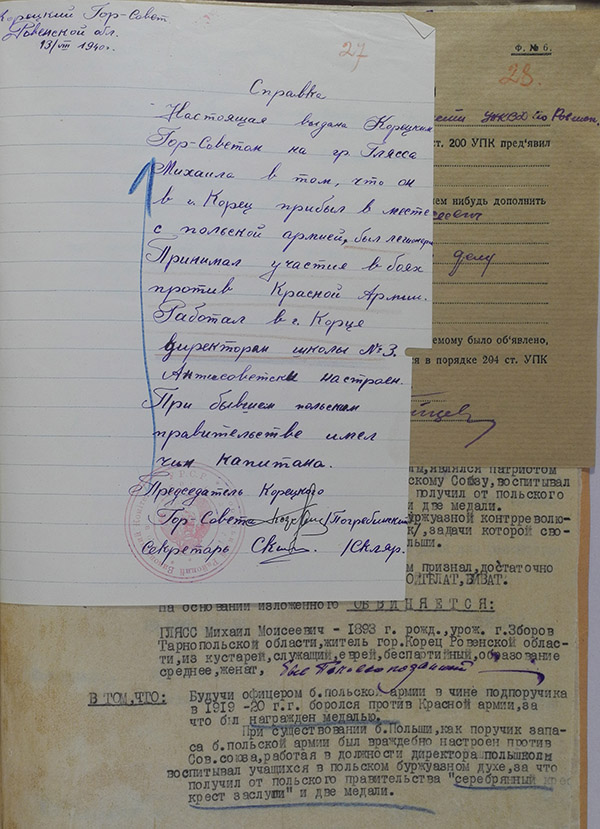 Корецкий Гор-Совет
Ровенской обл.
13/VIII 1940г.
27
Справка
Настоящая выдана Корецким
Гор-Советом на гр. Глясса
Михаила в том, что он
в г. Корец прибыл в месте
с польской армией, был легионер
Принимал участия в боях
против Красной Армии.
Работал в г. Корце
директором школы №3.
Антисоветски настроен.
При бывшем польским
правительстве имел
чин капитана.
Председатель Корецкого
Гор-Совета /Погребинский
Секретарь /Скляр.
Ф. № 6.
28
УНКВД по Ровен.
ст. 200 УПК пред'явил
ем нибудь дополнить
делу
емому было об'явлено,
ся в порядке 204 ст. УПК
ы, являлся патриотом
скому Союзу, воспитывал
получил от польского
и две медали.
уржуазной контрреволю-
к/, задачи которой сво-
льши.
м признал, достаточно
на основании изложенного ОБВИНЯЕТСЯ:
ГЛЯСС Михаил Моисеевич - 1893 г. рожд., урож. г. Зборов
Тарнопольской области, житель гор. Корец Ровенской облас-
ти, из кустарей, служащий, еврей, беспартийный, образование
среднее, женат,
В ТОМ, ЧТО: Будучи офицером б. польской армии в чине подпоручика
в 1919 -20 г.г. боролся против Красной армии, за
что был награжден медалью.
При существовании б. Польши, как поручик запа-
са б. польской армии был враждебно настроен против
Сов. союза, работая в должности директора польшколы
воспитывал учащихся в польском буржуазном духе, за что
получил от польского правительства "серебрянный крес
крест заслуги" и две медали.